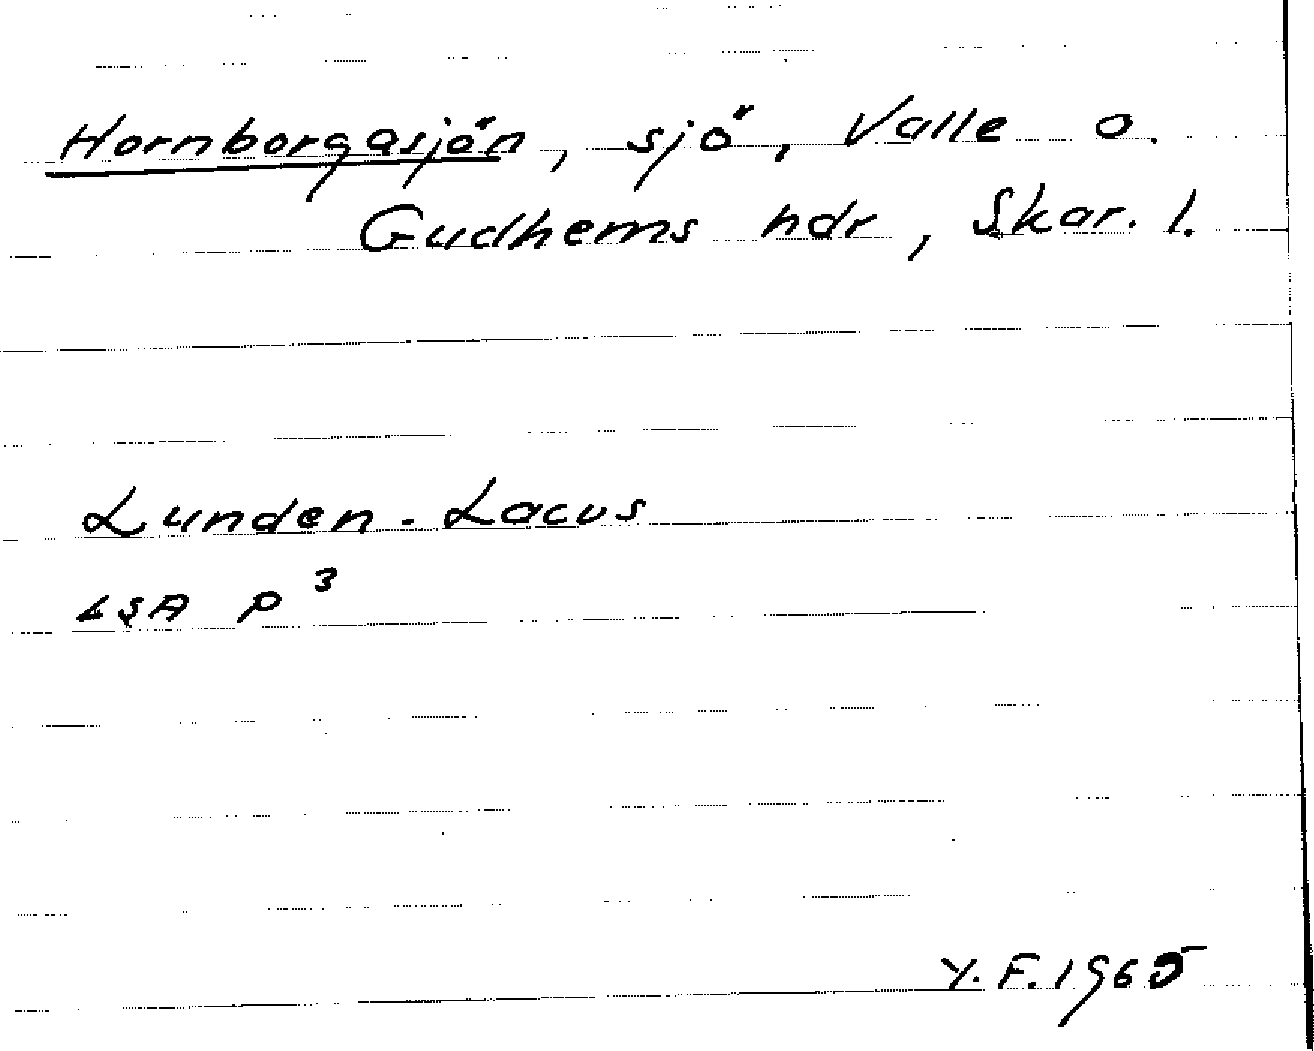 Hornborgasjön, sjö, Valle o.
Gudhems hdr, Skar. l.
Lunden - Lacus
LSA P 3
Y.F. 1965